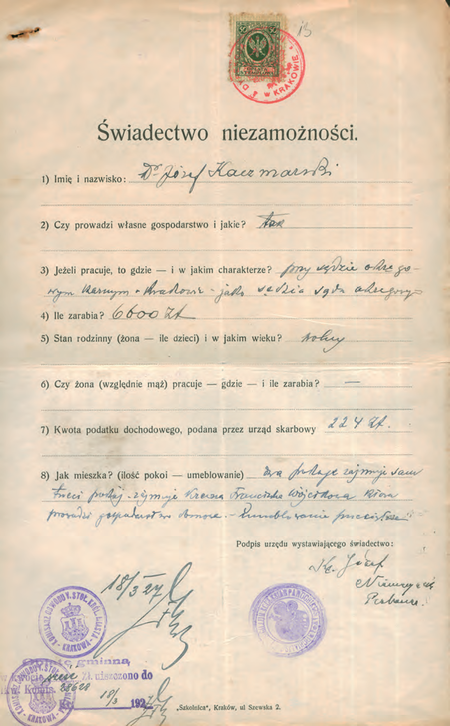 W KRAKOWIE
Świadectwo niezamożności.
1) Imię i nazwisko: Dr Józef Kaczmarski
2) Czy prowadzi własne gospodarstwo i jakie? tak
3) Jeżeli pracuje, to gdzie — i w jakim charakterze? przy sądzie okrę-go-
wym karnym w Krakowie - jako sędzia sądu okręgowego
4) Ile zarabia? 6600 Zł
5) Stan rodzinny (żona — ile dzieci) i w jakim wieku? wolny
6) Czy żona (względnie mąż) pracuje — gdzie — i ile zarabia? —
7) Kwota podatku dochodowego, podana przez urząd skarbowy 224 Zł.
8) Jak mieszka? (ilość pokoi — umeblowanie) Dwa pokoje zajmuje sam
trzeci pokój zajmuje Franciszka Wójcikowa która
prowadzi gospodarstwo domowe. - Umeblowanie
Podpis urzędu wystawiającego świadectwo:
X. Józef
18/3 27
KRAKOWA
gminną
kwocie Zł. uiszczono do
18/3 1927
„Szkolnica", Kraków, ul Szewska 2.